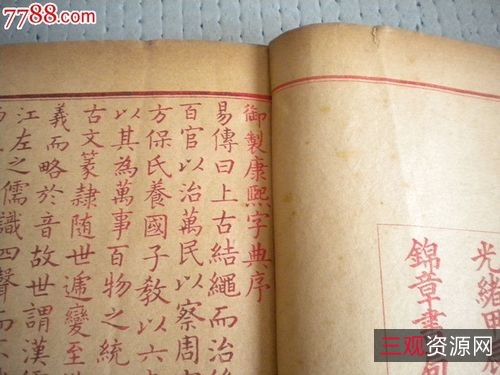 7788.com
光緒
錦章書局
御製康熙字典序
易傳曰上古結繩而治後
百官以治萬民以察周
方保氏養國子教以六
以其為萬事百物之統
古文篆隸随世遞變至
義而略於音故世謂漢儒
江左之儒識四聲而不
三观资源网